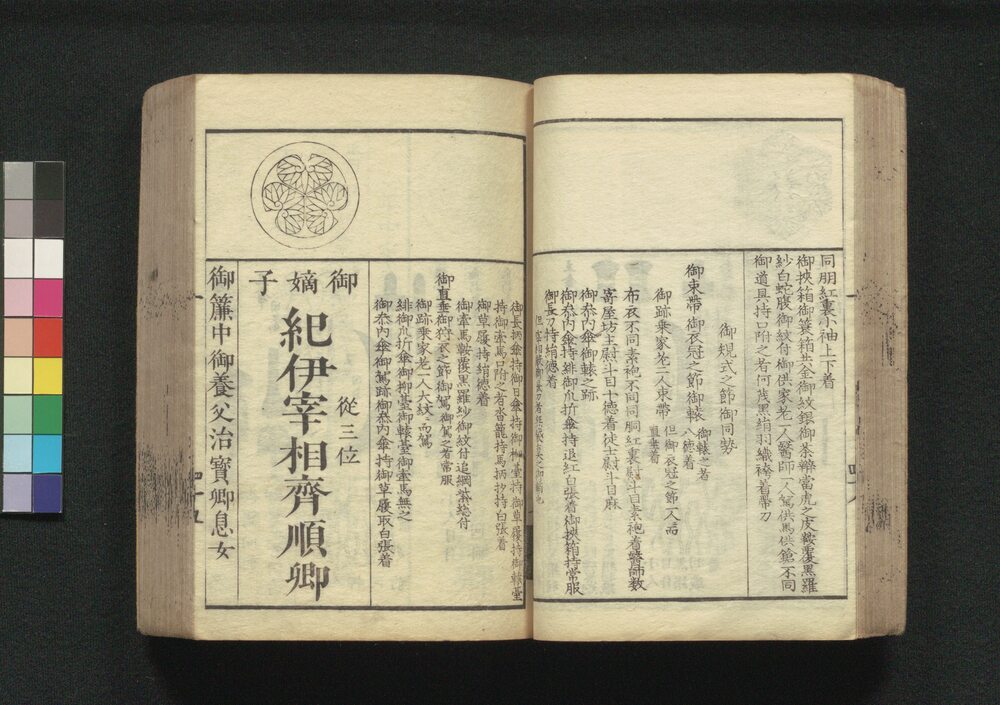 同朋紅裏小袖上下着
御挟箱御簑箱共金御紋銀御茶辨當虎之皮鞍覆黒羅
紗白蛇腹御紋付御供家老一人醫師一人駕供馬供鎗不同
御道具持口附之者何茂黒絹羽織袴着帶刀
御規式之節御同勢
御束帶御衣冠之節御轅
御轅之者
八徳着
御跡乘家老一人束帶
但御衣冠之節一人
直垂着
布衣不同素袍不同同朋紅裏熨斗目素袍着醫師数
寄屋坊主熨斗目十徳着徒士熨斗目麻
御参内傘御轅之跡
御参内傘持緋御爪折傘持退紅白張着御挟箱持常服
御長刀持絹徳着
御長柄傘持御日傘持御柳臺持御草履持御轅臺
持御牽馬口附之者沓籠持馬柄杓持白張着
御草履持絹徳着
御牽馬鞍覆黒羅紗御紋付追綱紫総付
御直垂御狩衣之節御駕御駕之者常服
御跡乘家老一人大紋ニ而駕
緋御爪折傘御柳臺御轅臺御牽馬無之
御参内傘御駕跡御参内傘持御草履取白張着
御嫡子
從三位
紀伊宰相齊順卿
御簾中御養父治寳卿息女
四十五